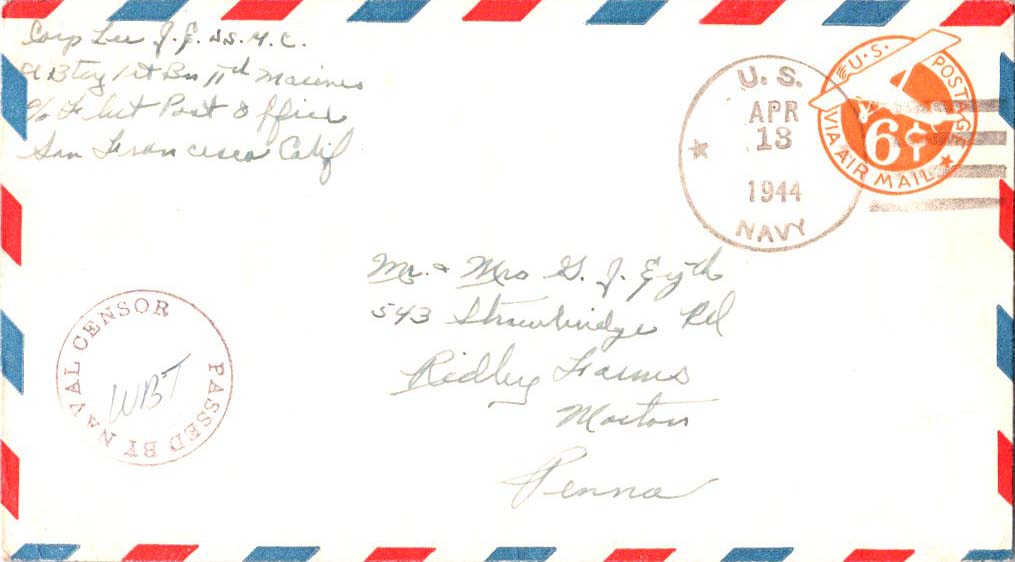 Corp Lee J.E. U.S.M.C.
A Btry 1st Bn 11th Marines
c/o Fleet Post Office
San Francisco Calif
U.S. POSTAGE
VIA AIR MAIL
6¢
U.S.
APR
13
1944
NAVY
Mr. & Mrs G. J. Eyth
543 Strawbridge Rd
Ridley Farms
Morton
Penna
PASSED BY NAVAL CENSOR
WBT